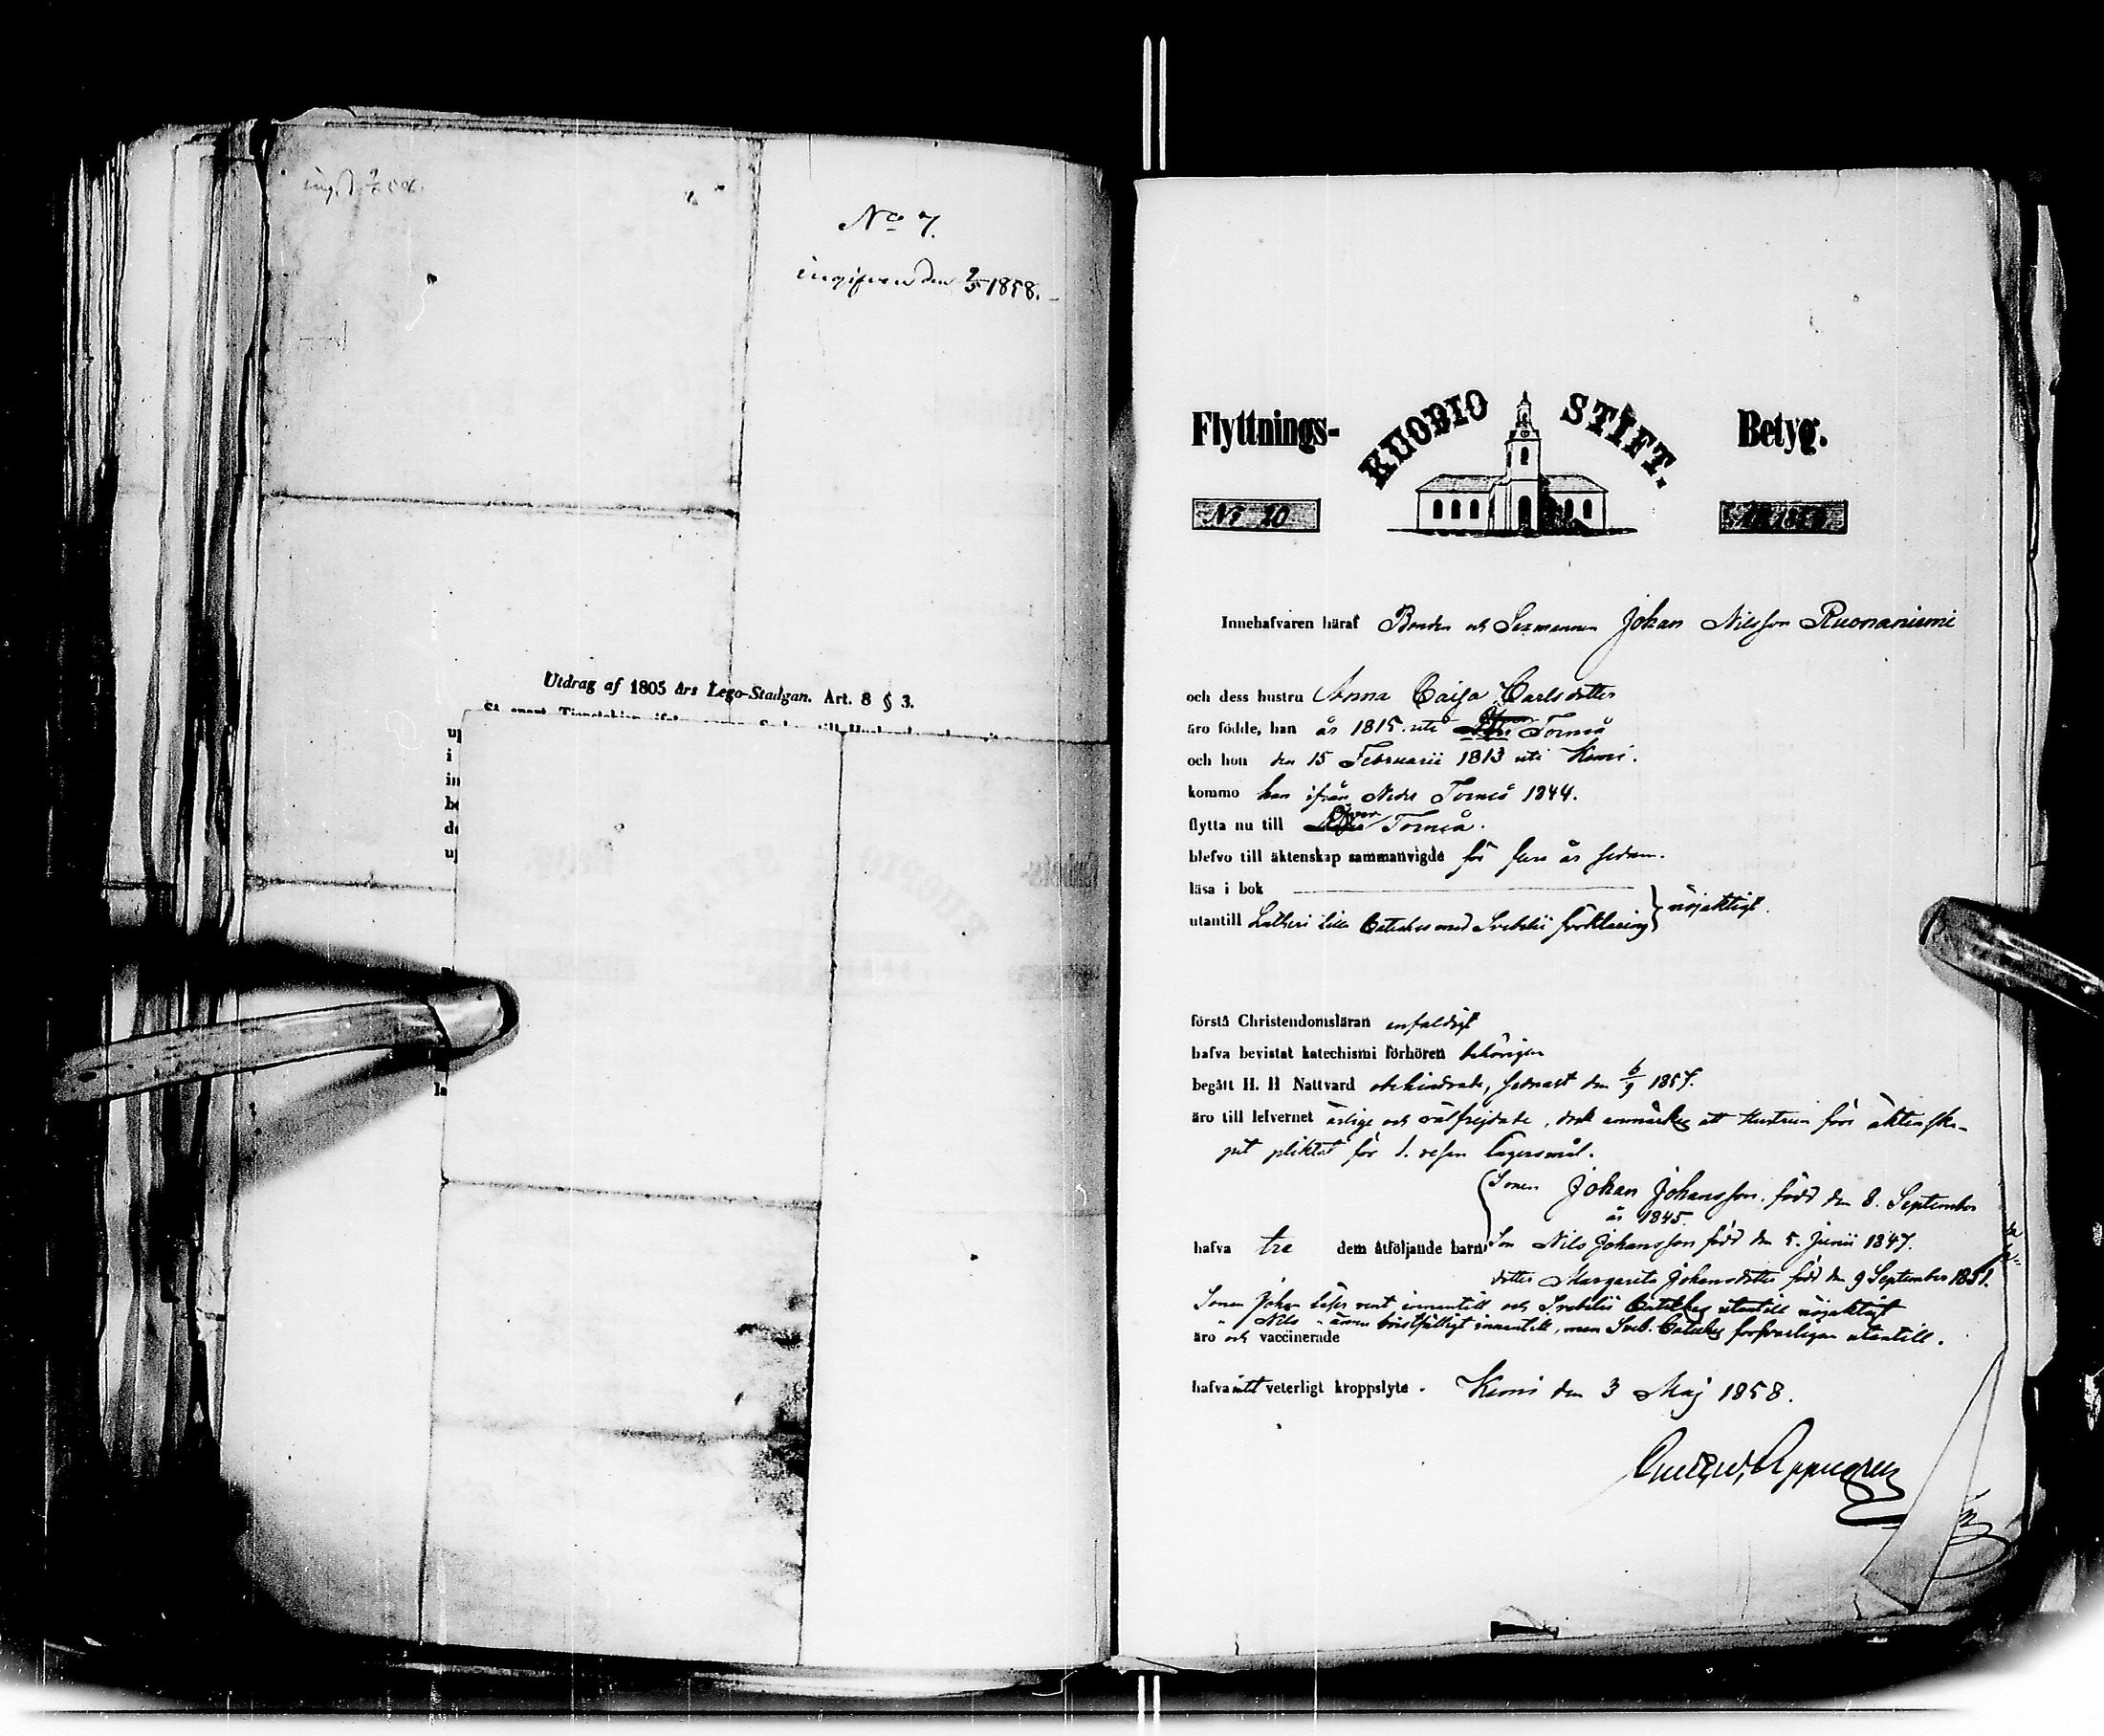 No 7.
ingifven den 9/5 1858.
Utdrag af 1805 års Lego-Stadgan. Art. 8 § 3.
Flyttnings- KUOBIO STIFT. Betyg.
No 20
Innehafvaren häraf Bonden och Sexmannen Johan Nilsson Ruonaniemi
och dess hustru Anna Caisa Carlsdotter
äro födde, han år 1815. uti Öfver Torneå
och hon den 15 Februarii 1813 uti Kemi.
kommo han ifrån Neder Torneå 1844.
flytta nu till Öfver Torneå.
blefvo till äktenskap sammanvigde för flera år sedan.
läsa i bok
utantill Lutheri lilla Cateches med Svebilii förklaring } nöjaktigt.
förstå Christendomsläran enfaldigt
hafva bevistat katechismi förhören behörigen
begått H. H Nattvard obehindrade, sednast den 6/9 1857.
äro till lefvernet ärlige och välfrejdade, dock anmärkes att Hustrun före äktenska-
pet pliktat för 1. resan Lägersmål.
Sonen Johan Johansson. född den 8. September
år 1845.
hafva tre dem åtföljande barn Son Nils Johansson född den 5. Junii 1847.
dotter Margareta Johansdotter född den 9 September 1851.
Sonen Johan läser rent innantill och Svebilii Cateches utantill nöjaktigt
" Nils " ännu bristfälligt innantill, men Sveb. Cateches försvarligen utantill.
äro och vaccinerade
hafva intet veterligt kroppslyte. Kemi den 3 Maj 1858.